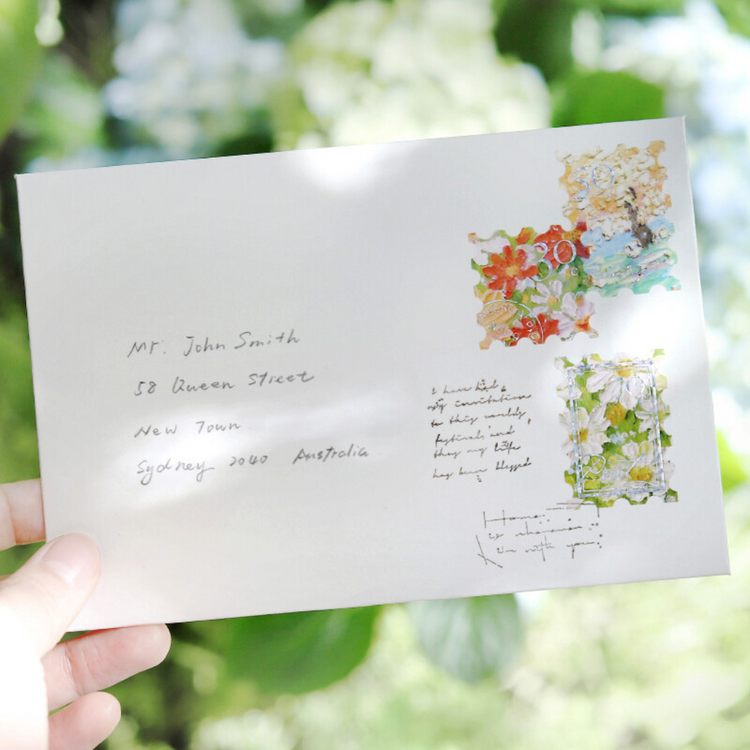 Mr. John Smith
58 Queen Street
New Town
Sydney 2040 Australia
30
I have had
my invitation
to this world's
festival and
thus my life
has been blessed
Home
is wherever
I'm with you